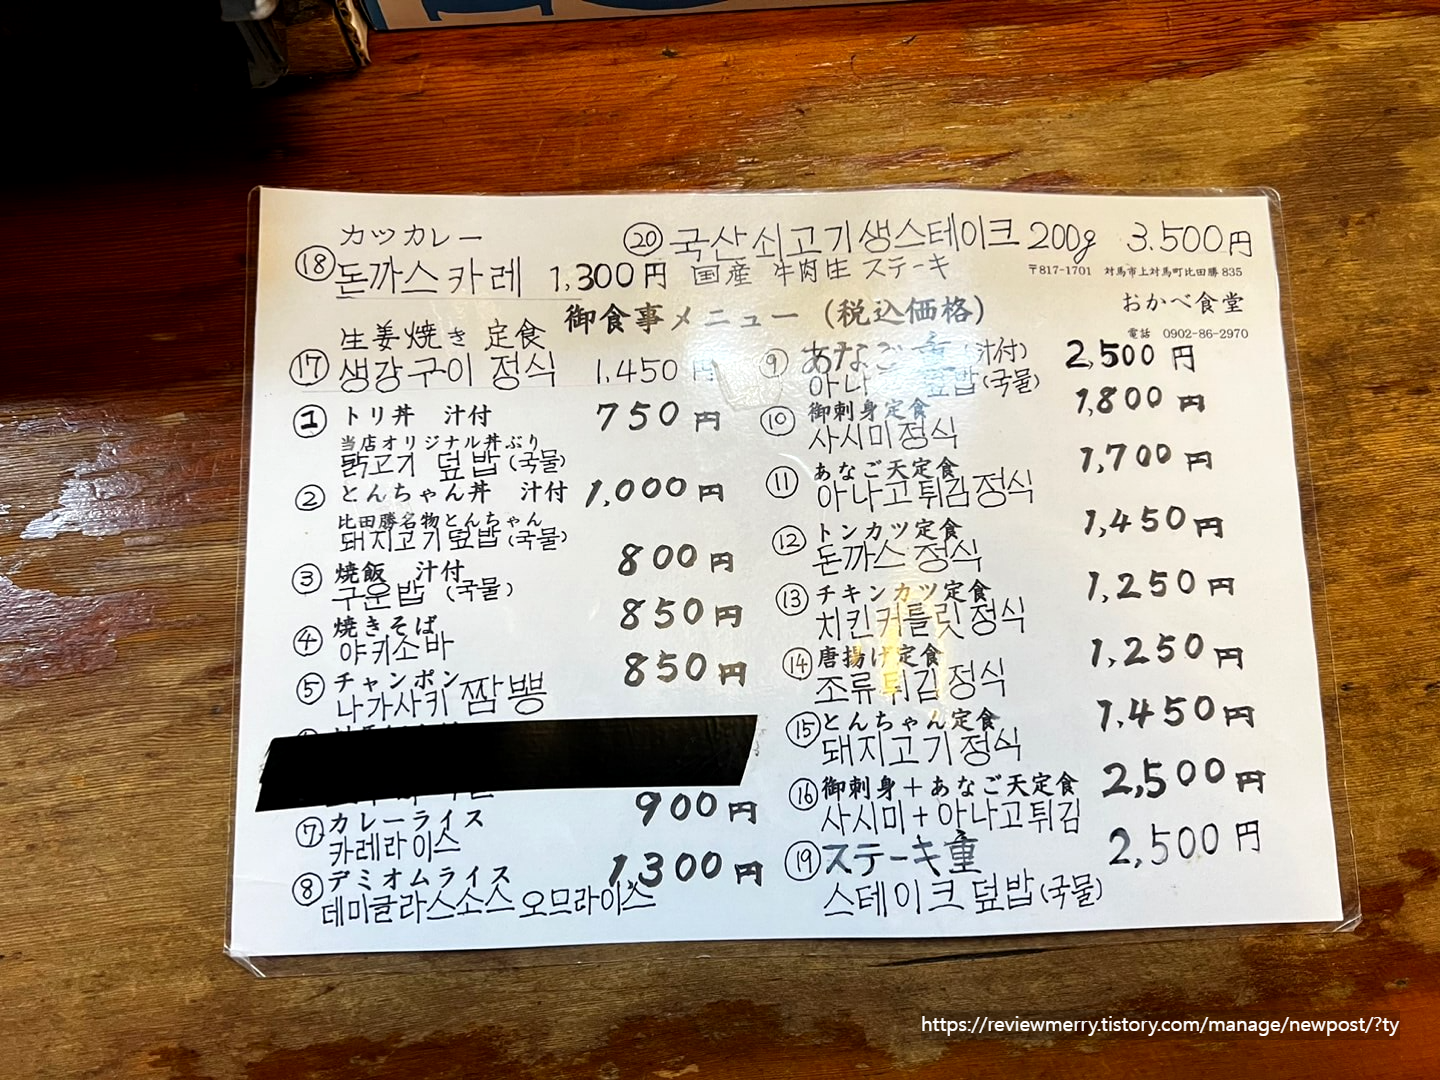 カツカレー
⑱ 돈까스 카레 1,300円
⑳ 국산쇠고기생스테이크 200g 3.500円
国産 牛肉生 ステーキ
〒817-1701 対馬市上対馬町比田勝835
おかべ食堂
電話 0902-86-2970
御食事メニュー (税込価格)
生姜焼き 定食
⑰ 생강구이 정식 1.450円
① トリ丼 汁付 750円
当店オリジナル丼ぶり
닭고기 덮밥(국물)
② とんちゃん丼 汁付 1,000円
比田勝名物とんちゃん
돼지고기덮밥(국물)
③ 焼飯 汁付 800円
구운밥 (국물)
④ 焼きそば 850円
야키소바
⑤ チャンポン 850円
나가사키 짬뽕
⑦ カレーライス 900円
카레라이스
⑧ デミオムライス 1300円
데미글라스소스 오므라이스
⑨ あなご重(汁付) 2,500円
아나 덮밥(국물)
⑩ 御刺身定食 1,800円
사시미정식
⑪ あなご天定食 1,700円
아나고튀김정식
⑫ トンカツ定食 1,450円
돈까스 정식
⑬ チキンカツ定食 1,250円
치킨커틀릿정식
⑭ 唐揚げ定食 1,250円
조류튀김정식
⑮ とんちゃん定食 1,450円
돼지고기정식
⑯ 御刺身+あなご天定食 2,500円
사시미+아나고튀김
⑲ ステーキ重 2,500円
스테이크덮밥(국물)
https://reviewmerry.tistory.com/manage/newpost/?ty